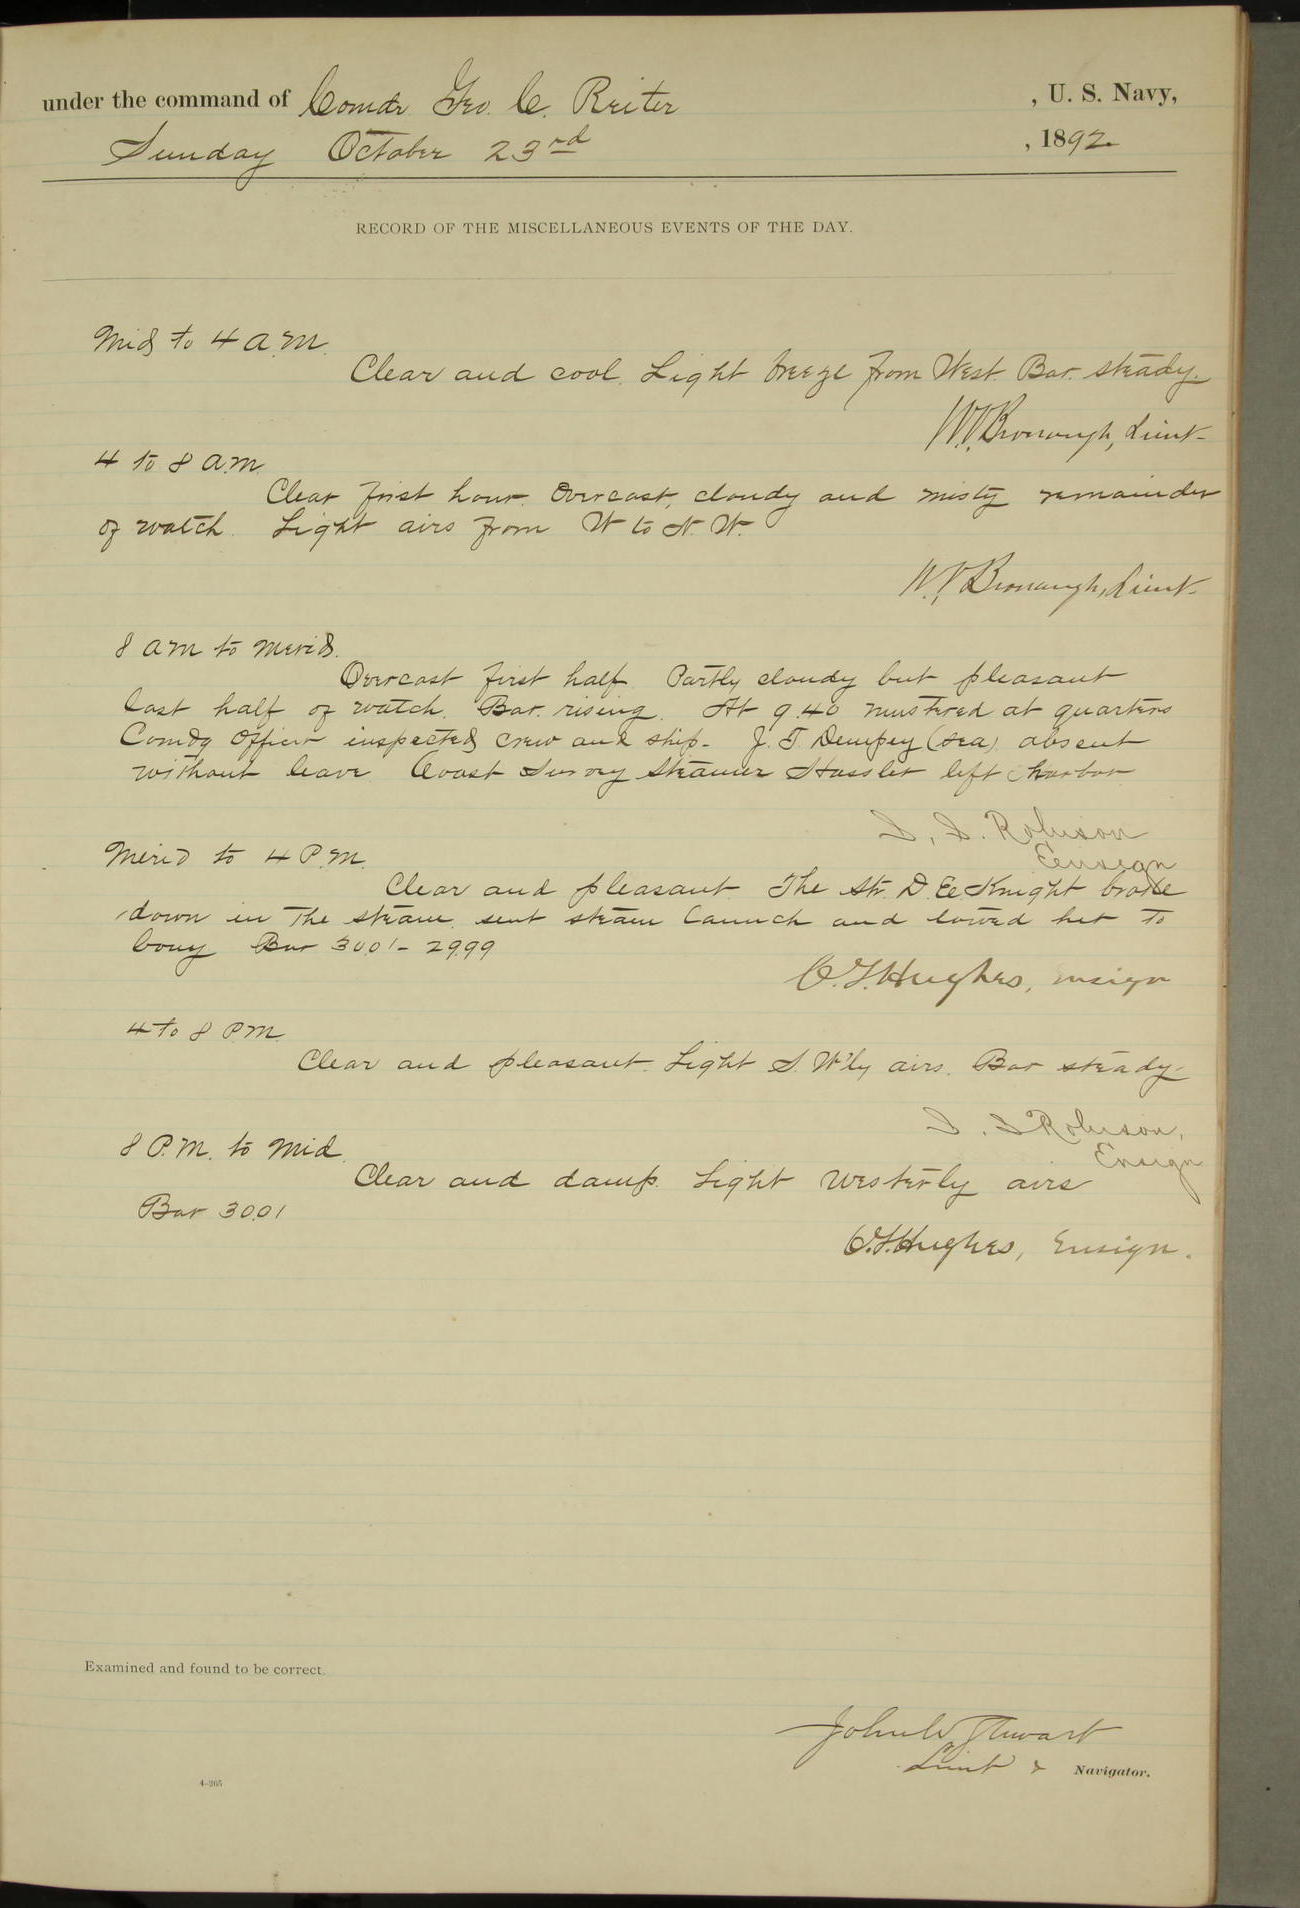 under the command of Comdr Geo. C. Reiter , U. S. Navy,
Sunday October 23rd , 1892.
RECORD OF THE MISCELLANEOUS EVENTS OF THE DAY.
Mid to 4 A.M.
Clear and cool. Light breeze from West. Bar. steady.
W.V. Bronaugh, Lieut.
4 to 8 a.m.
Clear first hour. Overcast, cloudy and misty remainder
of watch. Light airs from W to N. W.
W.V. Bronaugh, Lieut.
8 am to Merid.
Overcast first half. Partly cloudy but pleasant
last half of watch. Bar. rising. At 9.40 mustered at quarters
Comdg Officer inspected crew and ship. J. T. Dempsey (sea) absent
without leave. Coast Survey Steamer Hassler left harbor
S. S. Robison
Eensign
Merid to 4 P.M.
Clear and pleasant. The Str. D. E. Knight broke
down in the steam sent steam launch and towed her to
bouy Bar 30.01 - 29.99
C.F. Hughes, ensign
4 to 8 P.M.
Clear and pleasant. Light S. W'ly airs. Bar steady.
S. S. Robison,
Ensign
8 P.M. to Mid.
Clear and damp. Light westerly airs
Bar 30.01
C.F. Hughes, Ensign.
Examined and found to be correct.
John W. Stewart
Lieut & Navigator.
4-205